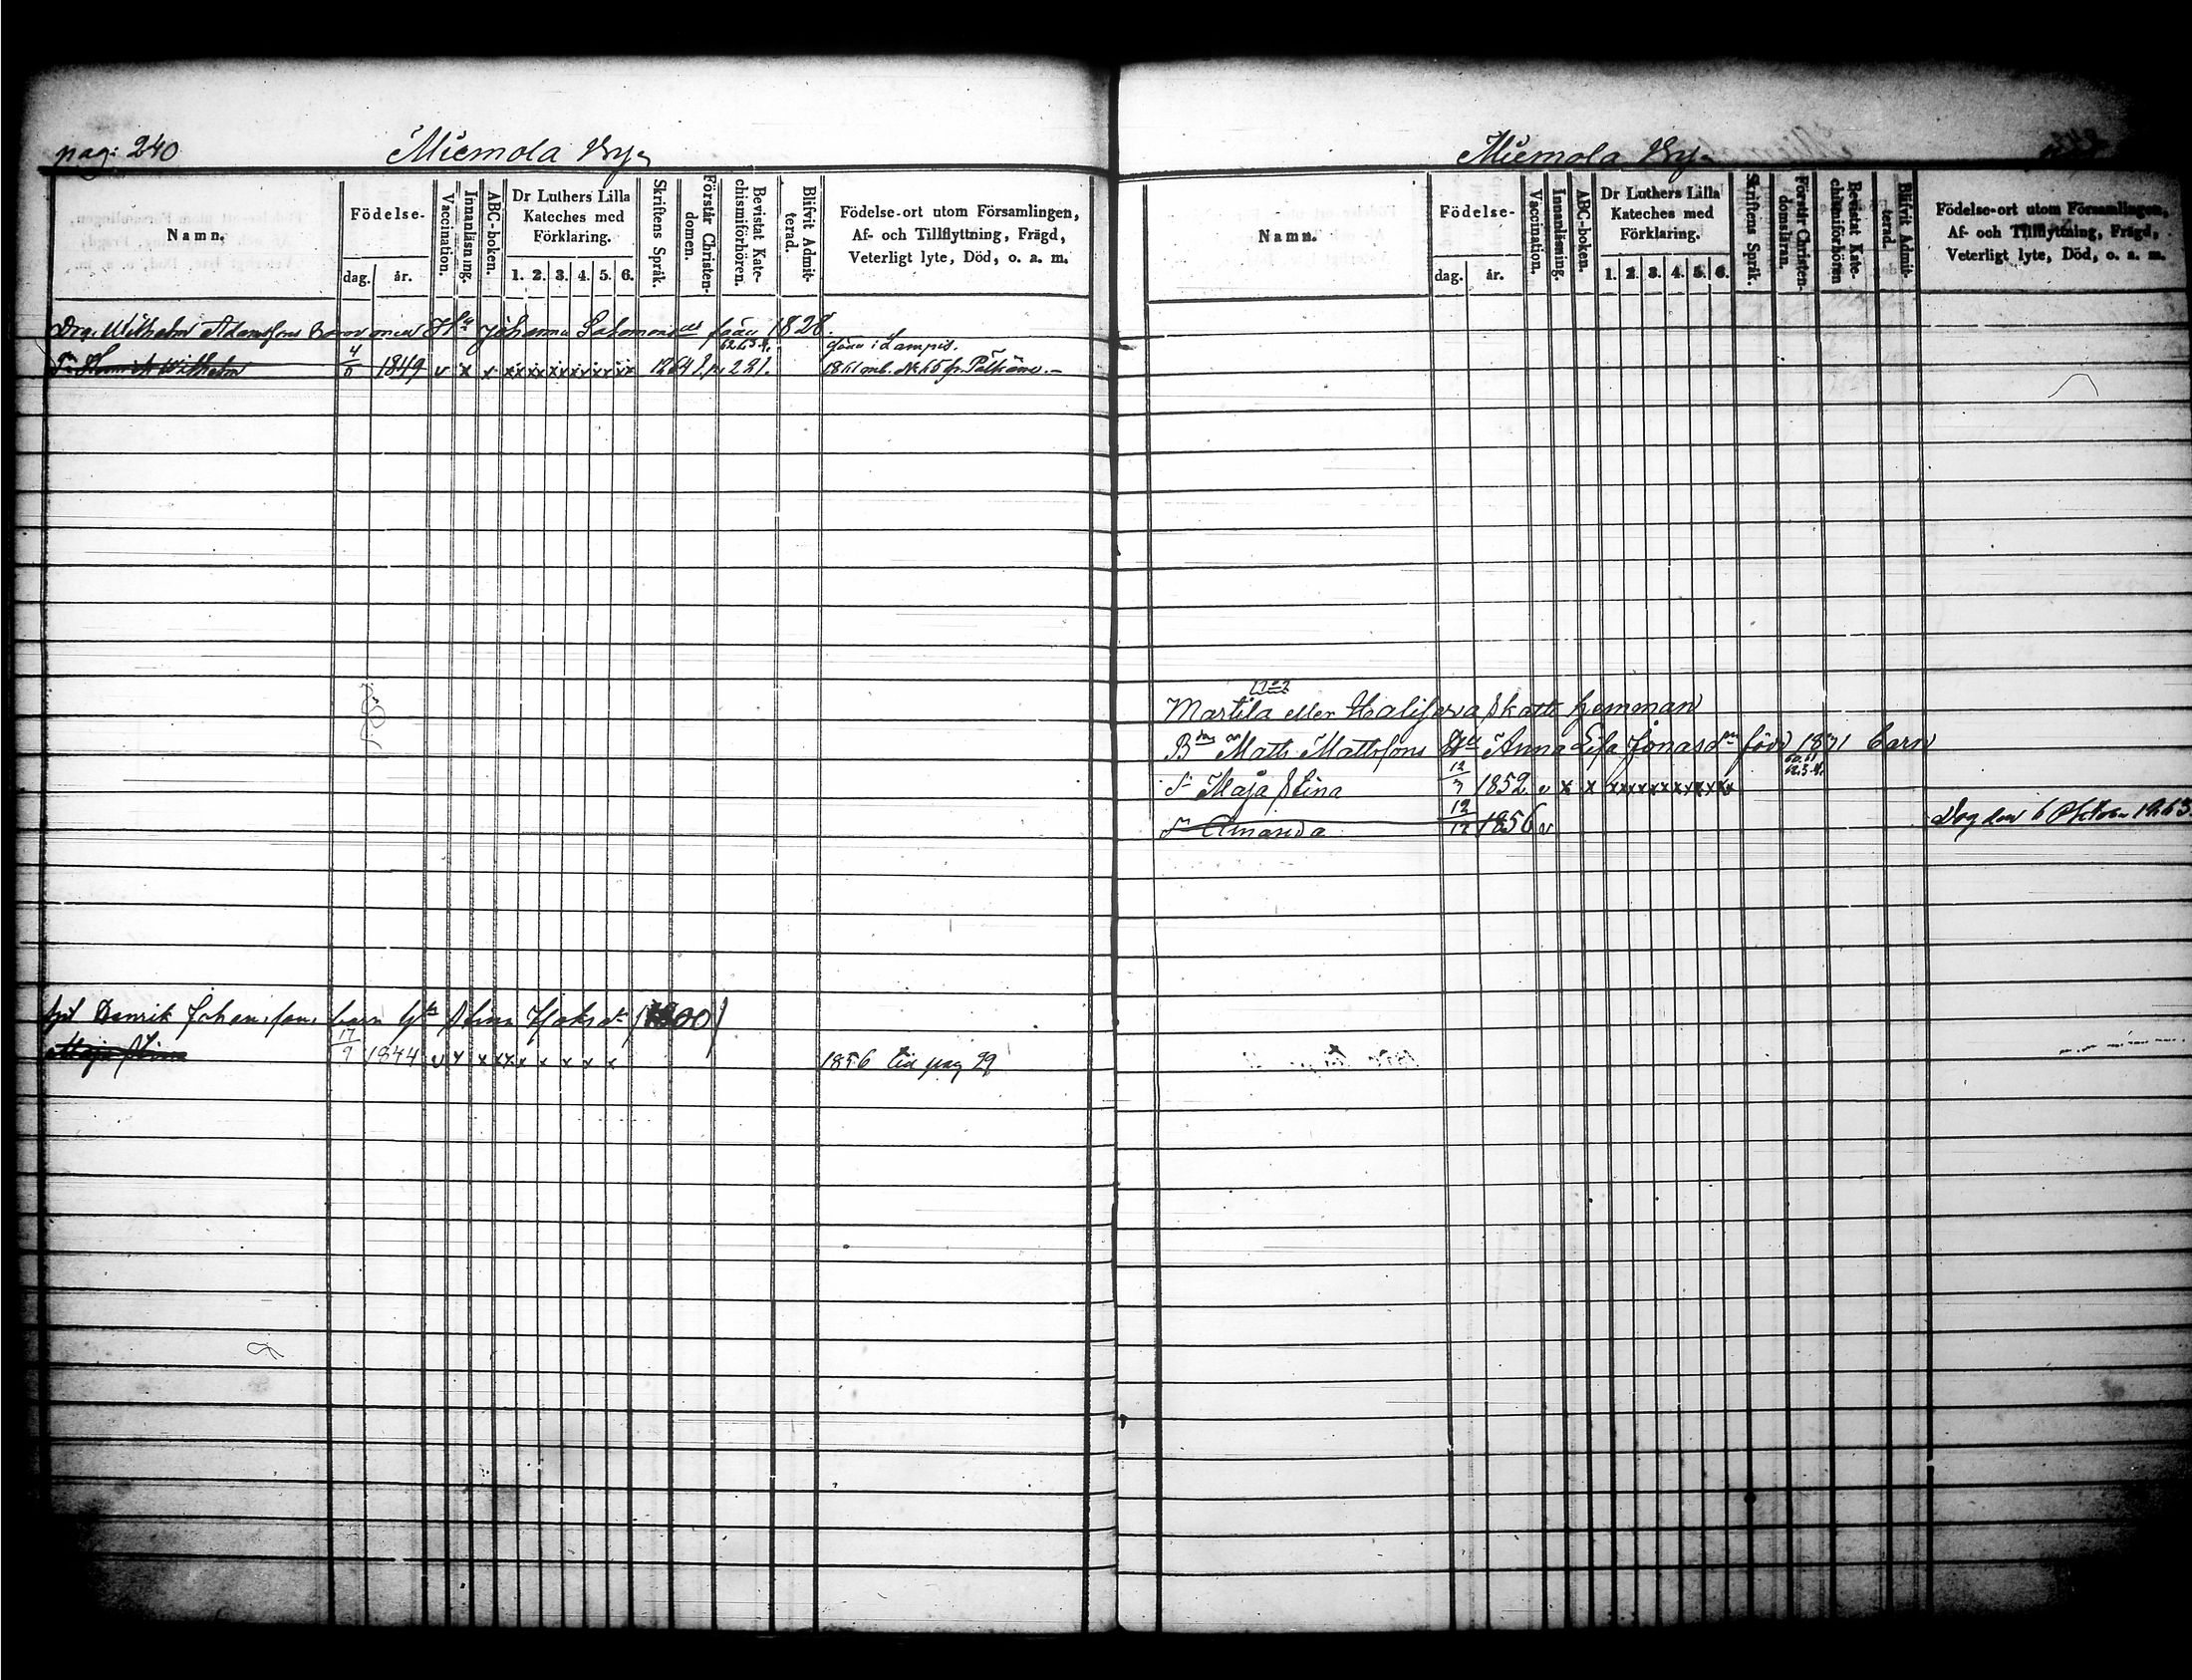 pag: 240
Miemola By
Namn.
Födelse-
dag.
år.
Vaccination.
Innanläsning.
ABC-boken.
Dr Luthers Lilla
Kateches med
Förklaring.
1. 2. 3. 4. 5. 6.
Skriftens Språk.
Förstår Christen-
domen.
Bevistat Kate-
chismiförhören.
Blifvit Admit-
terad.
Födelse-ort utom Församlingen,
Af- och Tillflyttning, Frägd,
Veterligt lyte, Död, o. a. m.
Drg. Wilhelm Adamsfons Johanna Salomons 1828.
62.63.4. född i Lampis.
S. Henrik Wilhelm 4/5 1849 v x x xx xx xx xx xx xx 1864 p. 221. 1861 Pälkäne.
Henrik Johansson barn Stina 1800
Maja Stina 17/9 1844 v x x xx x x x x x 1856 tid pag 29
Miemola By
Namn.
Födelse-
dag.
år.
Vaccination.
Innanläsning.
ABC-boken.
Dr Luthers Lilla
Kateches med
Förklaring.
1. 2. 3. 4. 5. 6.
Skriftens Språk.
Förstår Christen-
domsläran.
Bevistat Kate-
chismiförhören
Blifvit Admit-
terad.
Födelse-ort utom Församlingen,
Af- och Tillflyttning, Frägd,
Veterligt lyte, Död, o. a. m.
Martila eller skatte hemman
Matts Mattsfons Anna Lisa Jonasd född barn
60.61
62.3.4.
Maja Stina 12/7 1852 v x x xx xx xx xx xx xx
Amanda 12/12 1856 v Dog den 6 October 1863.